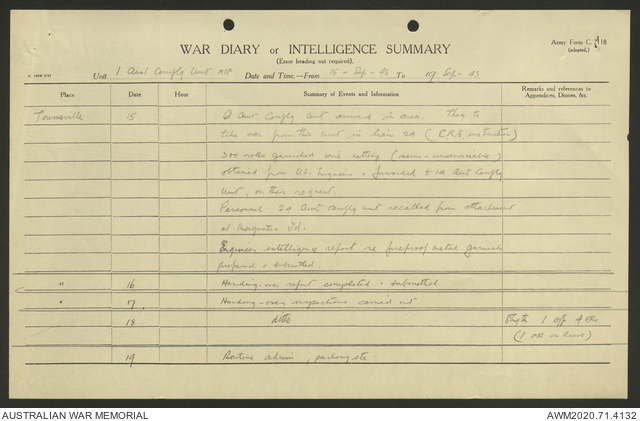 WAR DIARY or INTELLIGENCE SUMMARY
(Erase heading not required).
Army Form C. 118
(adapted.)
Unit 1 Aust Camflg Unit Date and Time.—From 15 - Sep - 43 To 19 - Sep - 43
Place Date Hour Summary of Events and Information Remarks and references to Appendices, Diaries, &c.
Townsville 15 6 Aust Camflg Unit arrived in area. They to
take over from this unit in lieu 24 (instruction)
300 rolls garnished wire netting
obtained from U.S. Engineers & forwarded to 14 Aust Camflg
Unit, on their request.
Personnel 24 Aust Camflg Unit recalled from attachment
at Magnetic Id.
Engineer intelligence report re fireproof metal garnish
prepared & submitted.
" 16 Handing-over report completed & submitted
" 17 Handing-over inspections carried out
18 ditto Strgth 1 off 4 ORs
(1 OR on leave)
19 Routine admin, packing etc
AUSTRALIAN WAR MEMORIAL
AWM2020.71.4132